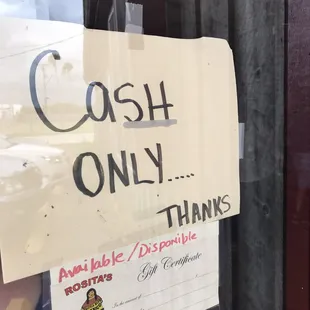 CASH
ONLY.....
THANKS
Available/Disponible
ROSITA'S
Gift Certificate